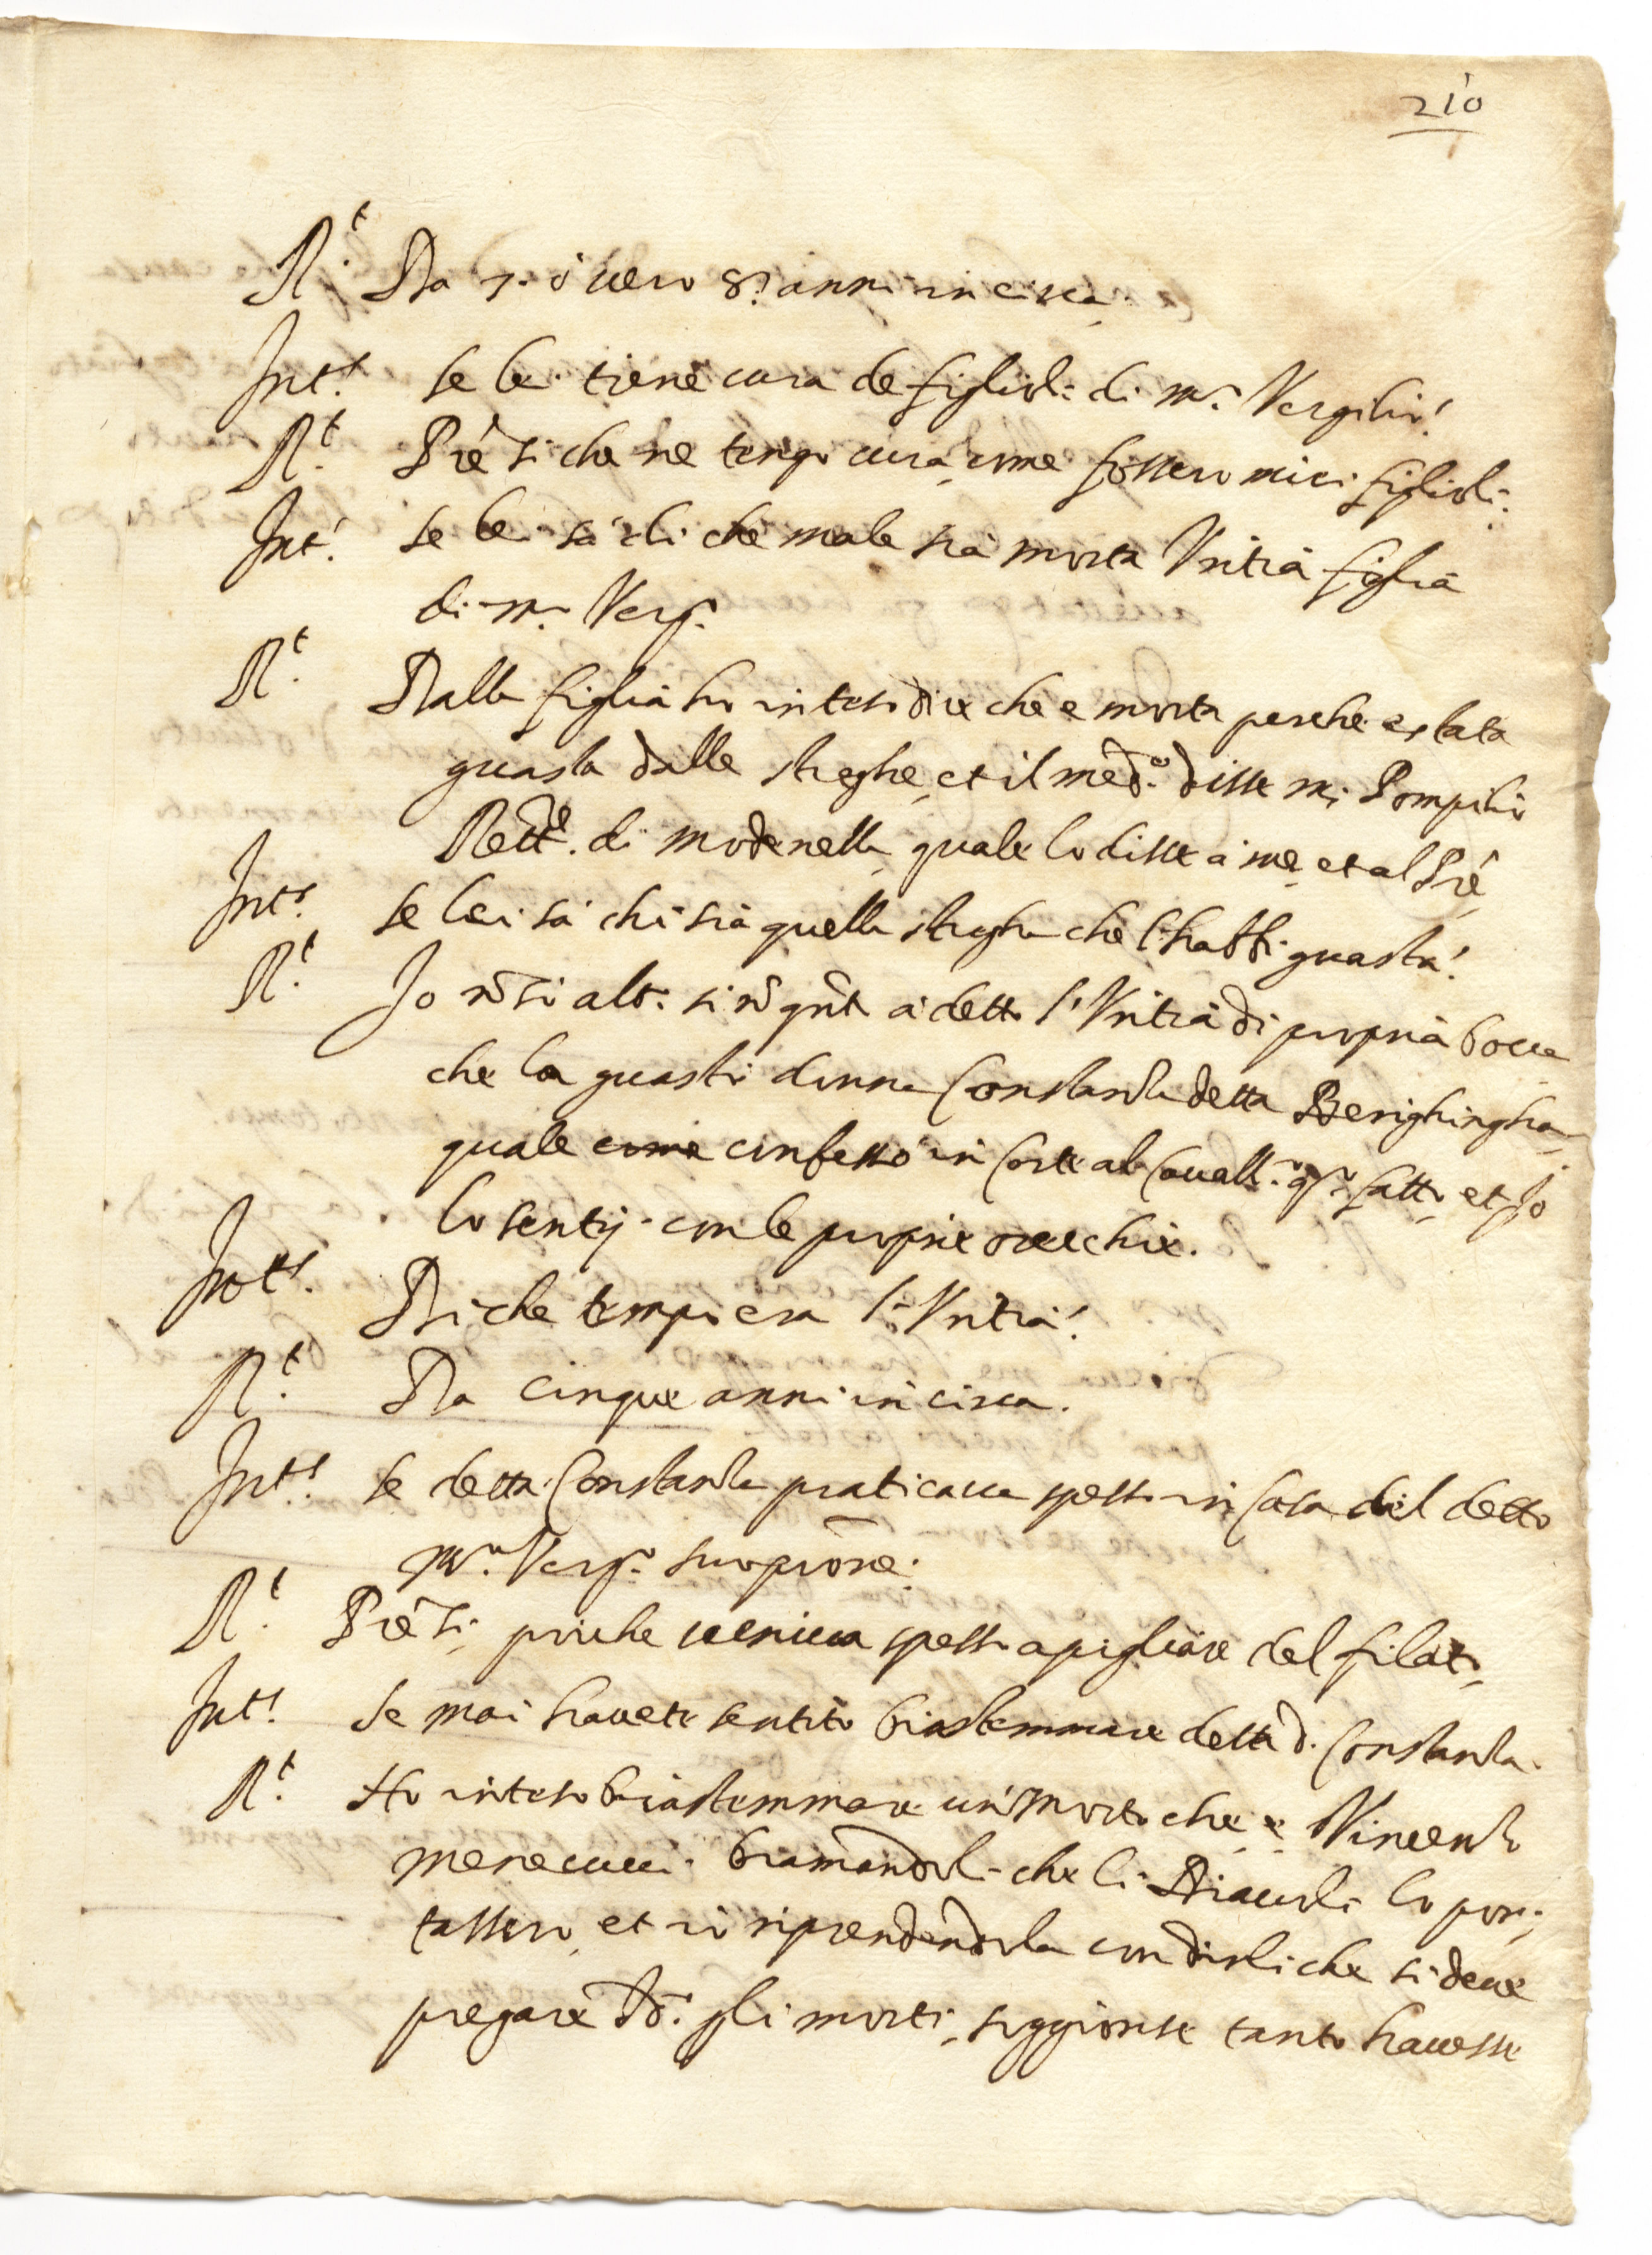 210
R.t Da 7. ò uero 8. anni in circa
Int.s se lei tiene cura de figlioli di m.r Vergilio!
R.t P're si che ne tengo cura come fossero miei figlioli.
Int.s se lei sà di che male sia morta Vritia figlia
di m.r Verg.o
R.t Dalla figlia ho inteso dire che e morta perche e stata
guasta dalle streghe, et il med.o disse m. Pompilio
Rett.e di modenella, quale lo disse a me, et al P're
Int.s se lei sà chi sia quella stregha che l'habbi guasta!
R.t Jo nō so alt.o si nō q'nto a detto l'Vritia di propria bocca
che la guastò donna Constanza detta Berighingha,
quale come confessò in Corte al Cauall.r Gatto, et Jo
lo sentij con le proprie orecchie.
Int.s Di che tempo era l'Vritia!
R.t Da cinque anni in circa.
Int.s se detta Constanza praticaua spesso in Casa del detto
m.r Verg.o suo p'rone.
R.t P're si, poiche ueniua spesso a pigliare del filato,
Int.s se mai hauete sentito biastemmare detta d. Constanza.
R.t Ho inteso biastemmare un morto che è Vincenzo
menecucci bramandoli che li Diauoli lo por-
tassero, et io riprendendola con dirli che si deue
pregare Dō. gli morti, soggionse tanto hauesse